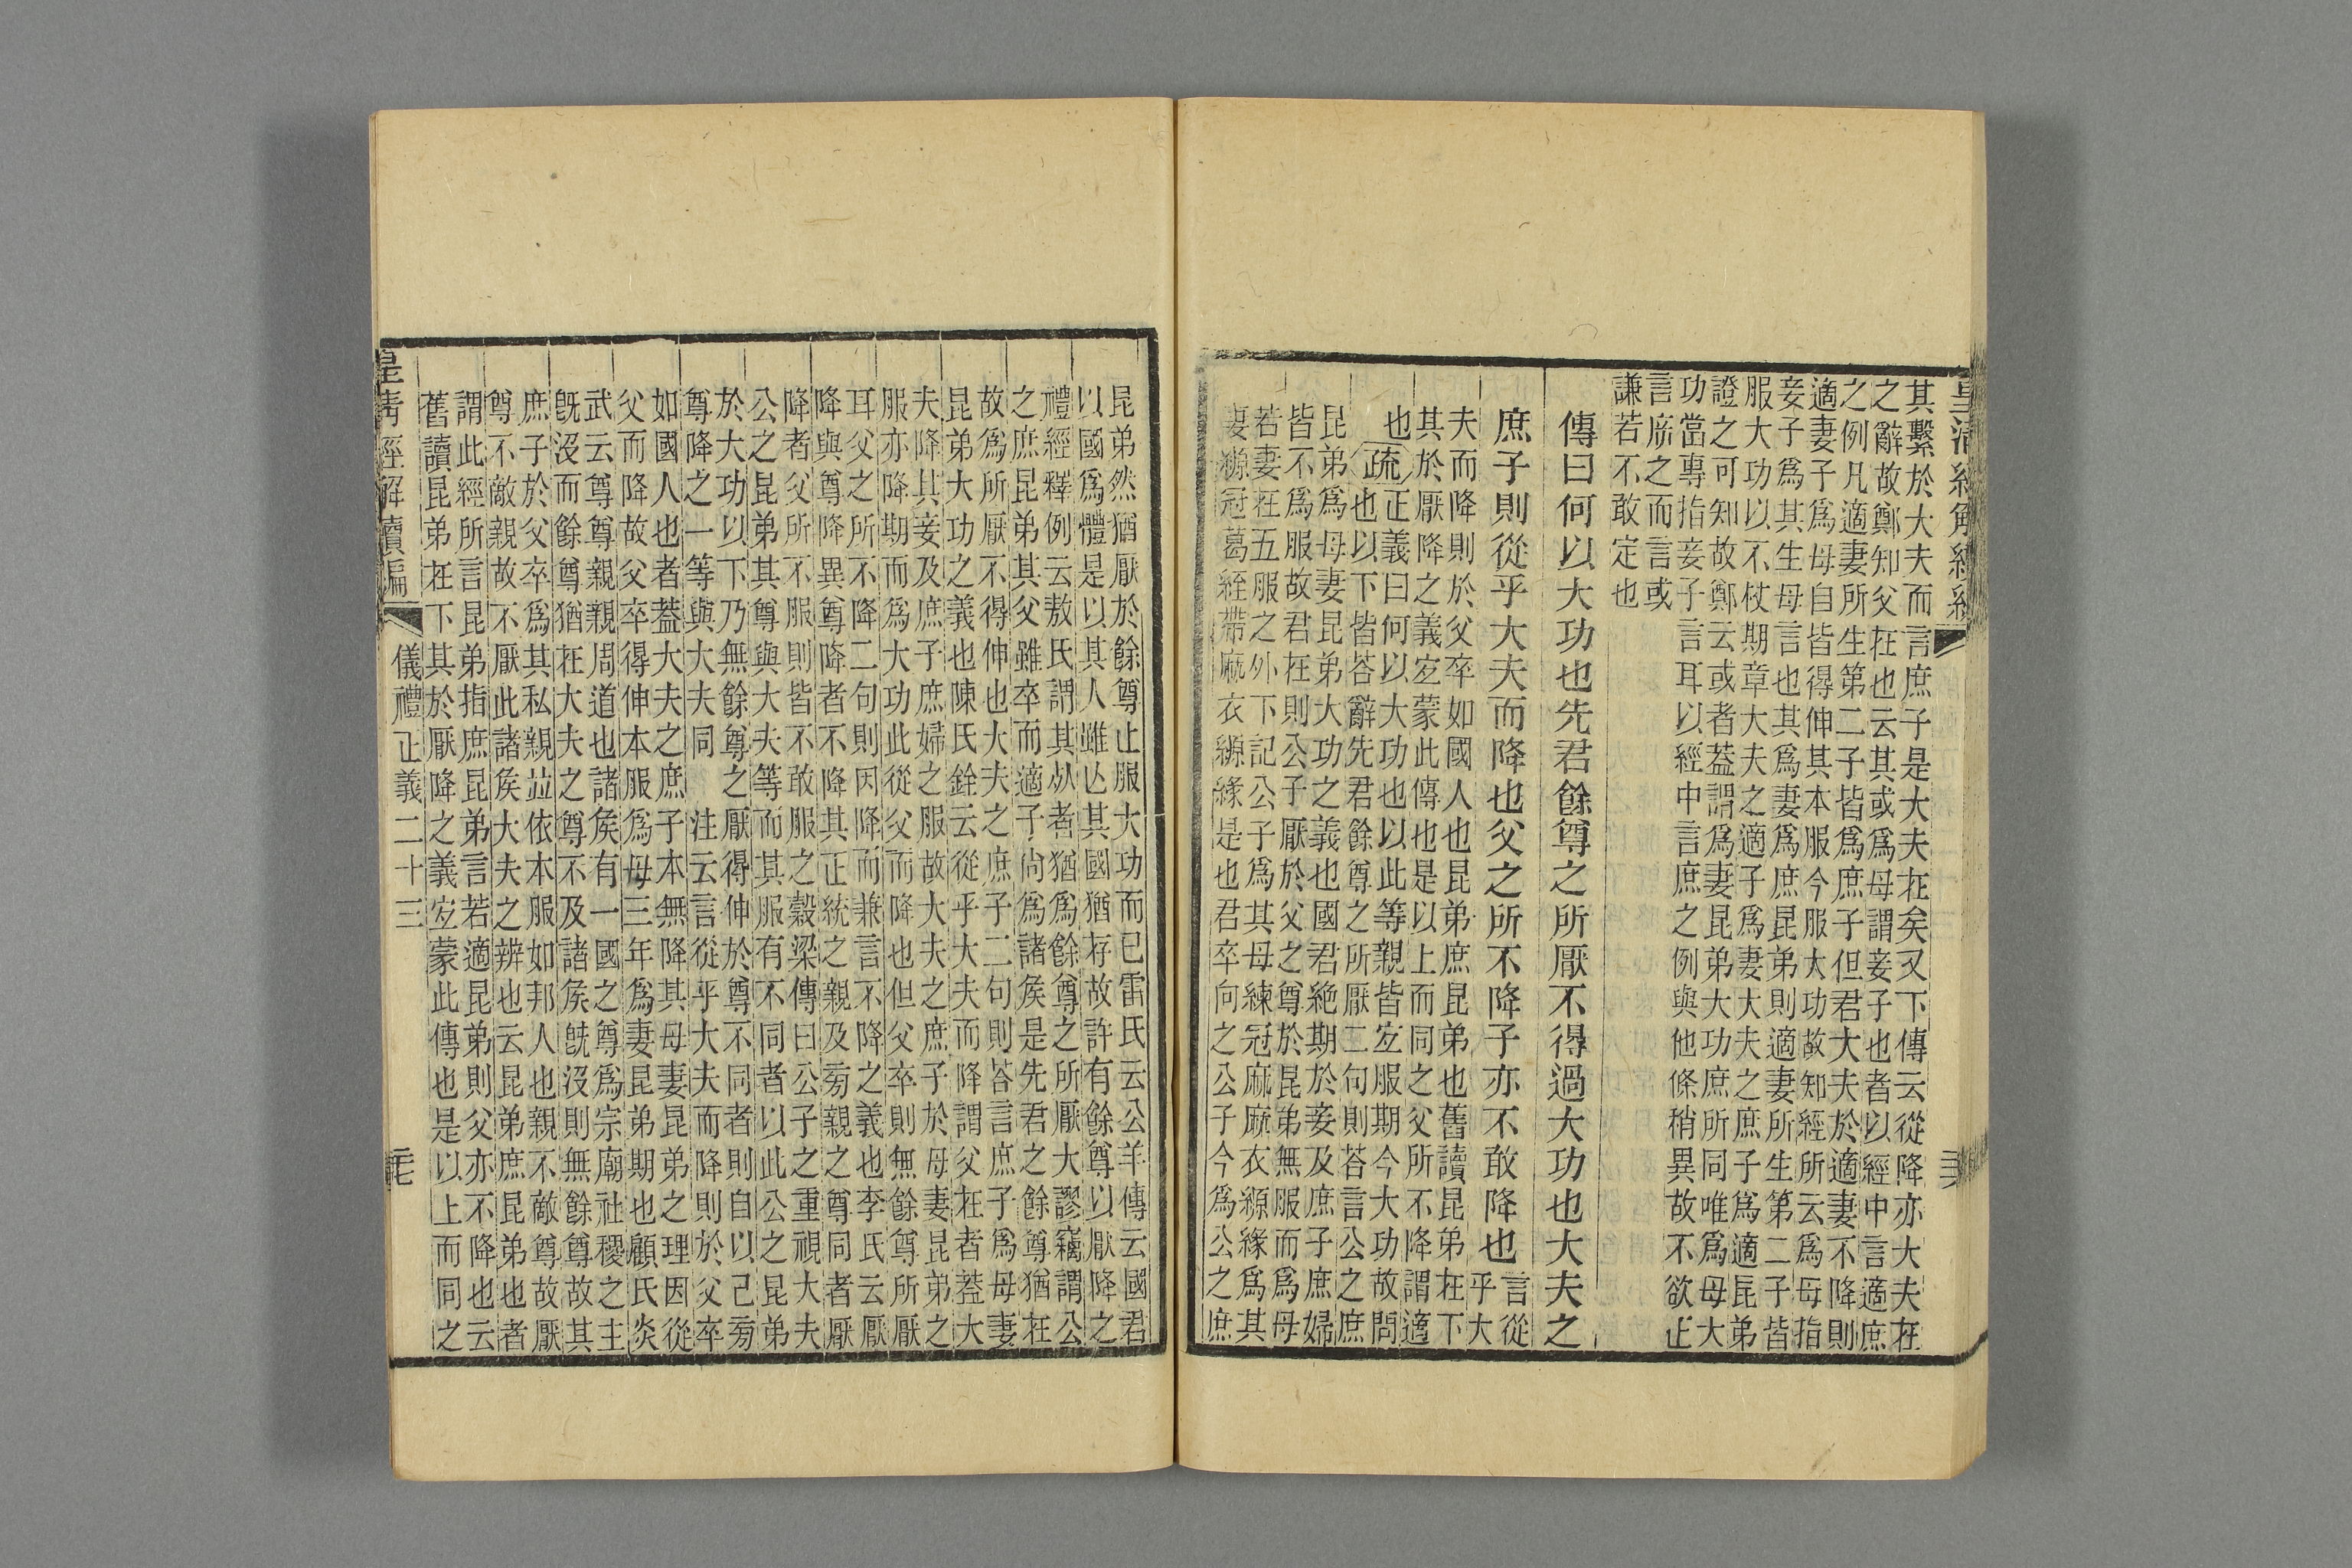 其繫於大夫而言庶子是大夫在矣又下傳云從降亦大夫在
之辭故鄭知父在也云其或爲母謂妾子也者以經中言適庶
之例凡適妻所生第二子皆爲庶子但君大夫於適妻不降則
適妻子爲母自皆得伸其本服今服大功故知經所云爲母指
妾子爲其生母言也其爲妻爲庶昆弟則適妻所生第二子皆
服大功以不杖期章大夫之適子爲妻大夫之庶子爲適昆弟
證之可知故鄭云或者蓋謂爲妻昆弟大功庶所同唯爲母大
功當專指妾子言耳以經中言庶之例與他條稍異故不欲止
言庶之而言或
謙若不敢定也
傳曰何以大功也先君餘尊之所厭不得過大功也大夫之
庶子則從乎大夫而降也父之所不降子亦不敢降也
言從
乎大
夫而降則於父卒如國人也昆弟庶昆弟也舊讀昆弟在下
其於厭降之義宜蒙此傳也是以上而同之父所不降謂適
也
疏
正義曰何以大功也以此等親皆宜服期今大功故問
也以下皆荅辭先君餘尊之所厭二句則荅言公之庶
昆弟爲母妻昆弟大功之義也國君絶期於妾及庶子庶婦
皆不爲服故君在則公子厭於父之尊於昆弟無服而爲母
若妻在五服之外下記公子爲其母練冠麻麻衣縓緣爲其
妻縓冠葛絰帶麻衣縓緣是也君卒向之公子今爲公之庶
昆弟然猶厭於餘尊止服大功而已雷氏云公羊傳云國君
以國爲體是以其人雖亾其國猶存故許有餘尊以厭降之
禮經釋例云敖氏謂其然者猶爲餘尊之所厭大謬竊謂公
之庶昆弟其父雖卒而適子尚爲諸矦是先君之餘尊猶在
故爲所厭不得伸也大夫之庶子二句則荅言庶子爲母妻
昆弟大功之義也陳氏銓云從乎大夫而降謂父在者蓋大
夫降其妾及庶子庶婦之服故大夫之庶子於母妻昆弟之
服亦降期而爲大功此從父而降也但父卒則無餘尊所厭
耳父之所不降二句則因降而兼言不降之義也李氏云厭
降與尊降異尊降者不降其正統之親及旁親之尊同者厭
降者父所不服則皆不敢服之穀梁傳曰公子之重視大夫
公之昆弟其尊與大夫等而其服有不同者以此公之昆弟
於大功以下乃無餘尊之厭得伸於尊不同者則自以己旁
尊降之一等與大夫同 注云言從乎大夫而降則於父卒
如國人也者蓋大夫之庶子本無降其母妻昆弟之理因從
父而降故父卒得伸本服爲母三年爲妻昆弟期也顧氏炎
武云尊尊親親周道也諸矦有一國之尊爲宗廟社稷之主
旣沒而餘尊猶在大夫之尊不及諸矦旣沒則無餘尊故其
庶子於父卒爲其私親竝依本服如邦人也親不敵尊故厭
尊不敵親故不厭此諸矦大夫之辨也云昆弟庶昆弟也者
謂此經所言昆弟指庶昆弟言若適昆弟則父亦不降也云
舊讀昆弟在下其於厭降之義宜蒙此傳也是以上而同之
皇清經解續編
儀禮正義二十三